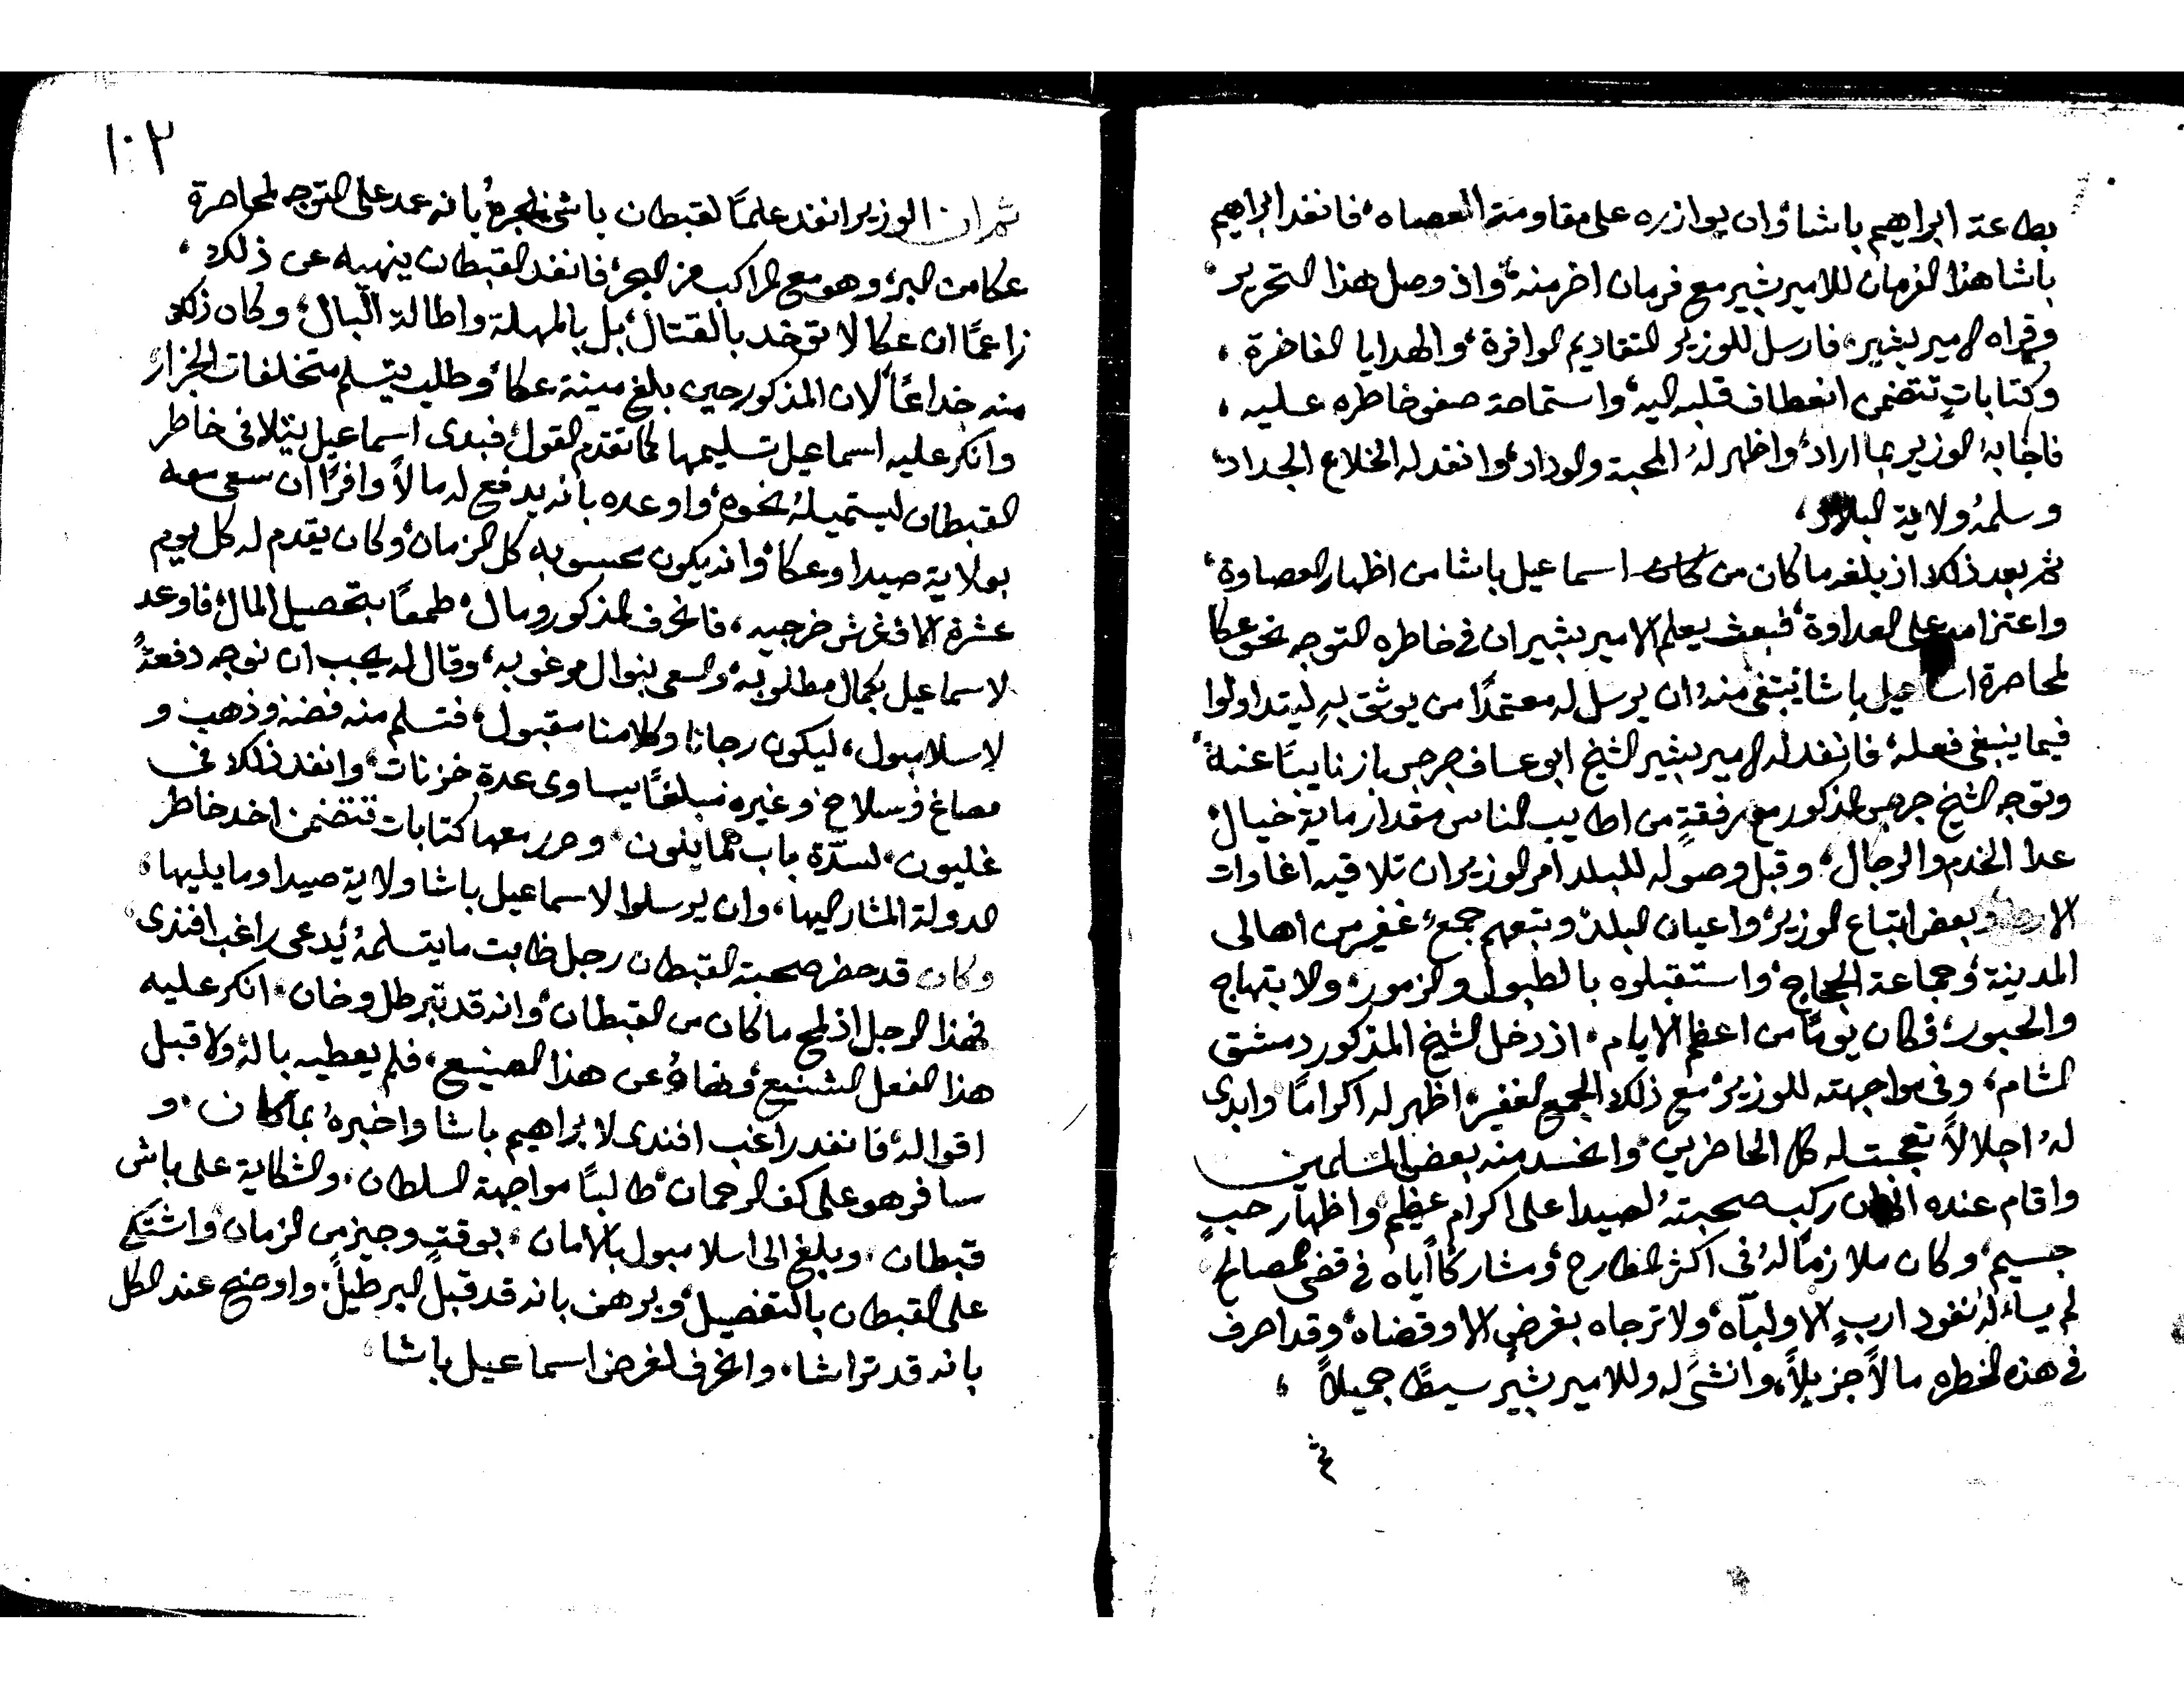 بطاعة ابراهيم باشا، وان يوازره على مقاومة العصاه، فانفد ابراهيم
باشا هذا الفرمان للامير بشير مع فرمان اخر منه، واذ وصل هذا التحرير،
وقراه الامير بشير، فارسل للوزير التقاديم الوافرة، والهدايا الفاخرة،
وكتاباتٍ تتضمن انعطاف قلبه اليه، واستماحة صفو خاطره عليه،
فاجابهُ الوزير بما اراد، واظهر لهُ المحبة والوداد، وانفد له الخلاع الجداد،
وسلمهُ ولاية البلاد،
ثم بعد ذلك اذ بلغه ما كان من اسماعيل باشا من اظهار العصاوة،
واعتزامه على العداوة، فبعث يعلم الامير بشير ان في خاطره التوجه نحو عكا
لمحاصرة اسماعيل باشا يبتغي منهُ ان يرسل له معتمدًا من يوثق بهِ ليتداولوا
فيما ينبغي فعلهُ، فانفد له الامير بشير الشيخ ابو عساف جرجس باز نايبًا عنهُ،
وتوجه الشيخ جرجس المذكور مع رفقةٍ من اطايب الناس مقدار ماية خيال،
عدا الخدم والرجال، وقبل وصوله للبلد امر الوزير ان تلاقيه اغاوات
وبعض اتباع الوزير، واعيان البلد، وتبعهم جمعٌ غفير من اهالى
المدينة، وجماعة الحجاج، واستقبلوه بالطبول والزمور، والابتهاج
والحبور، فكان يومًا من اعظم الايام، اذ دخل الشيخ المذكور دمشق
الشام، وفى مواجهته للوزير، مع ذلك الجمع الغفير، اظهر له اكرامًا وابدى
لهُ اجلالاً تعجبت له كل الحاضرين، وانحسد منه بعض المسلمين
واقام عنده ركب صحبتهُ لصيدا على اكرام عظيم، واظهار حبٍ
جسيم، وكان ملازمًا لهُ فى اكثر المطارح، ومشاركًا اياه في قضى المصالح
لم يساله نفود اربٍ الا ولبآه، ولا ترجاه بغرضٍ الا وقضاه، وقد احرف
في هذه الخطره مالاً جزيلاً، وانشىَ له وللامير بشير سيطًا جميلاً،
١٠٢
ثم ان الوزير انفد علمًا لقبطان باشي بالبحر بانه عمد على التوجه لمحاصرة
عكا من البر، وهو مع المراكب من البحر، فانفد القبطان ينهيه عن ذلك،
زاعمًا ان عكا لا توخد بالقتال، بل بالمهلة واطالة البال، وكان ذلك
منه خداعًا، لان المذكور حين بلغ مينة عكا، وطلب يتسلم متخلفات الجزار
وانكر عليه اسماعيل تسليمها كما تقدم القول، فبدى اسماعيل يتلافى خاطر
القبطان ليستميلهُ نحوه، واوعده بانه يدفع له مالاً وافرًا ان سعى معه
بولاية صيدا وعكا، وانه يكون محسوبه كل الزمان، وكان يقدم له كل يوم
عشرة الاف غرش خرجيه، فانحرف المذكور ومال، طمعًا بتحصيل المال، فاوعد
لاسماعيل بكمال مطلوبه، والسعى بنوال مرغوبه، وقال له يجب ان نوجه دفعةً
لإسلامبول، ليكون رجانا وكلامنا مقبول، فتسلم منه فضه وذهب و
مصاغ وسلاح وغيره مبلغًا يساوى عدة خزنات، وانفد ذلك فى
غليون، لسدّة باب همايون، وحرر معها كتابات تتضمن اخد خاطر
الدولة المشار اليها، وان يرسلوا لاسماعيل باشا ولاية صيدا وما يليها،
وكان قد حضر صحبة القبطان رجل ظابت ما يتسلمهُ يُدعى راغب افندى
فهذا الرجل اذ لمح ما كان من القبطان، وانه قد تبرطل وخان، انكر عليه
هذا الفعل الشنيع، ونهاهُ عن هذا الصنيع، فلم يعطيه بالهُ ولا قبل
اقوالهُ، فانفد راغب افندى لابراهيم باشا واخبرهُ بما كان، و
سافر هو على كف الرحمان، طالبًا مواجهة السلطان، والشكاية على باش
قبطان، وبلغ الى اسلامبول بالامان، بوقتٍ وجيز من الزمان، واشتكى
على القبطان بالتفصيل، وبرهن بانه قد قبل البرطيل، واوضح عند الكل
بانه قد تراشا، وانحرف لغرض اسماعيل باشا،